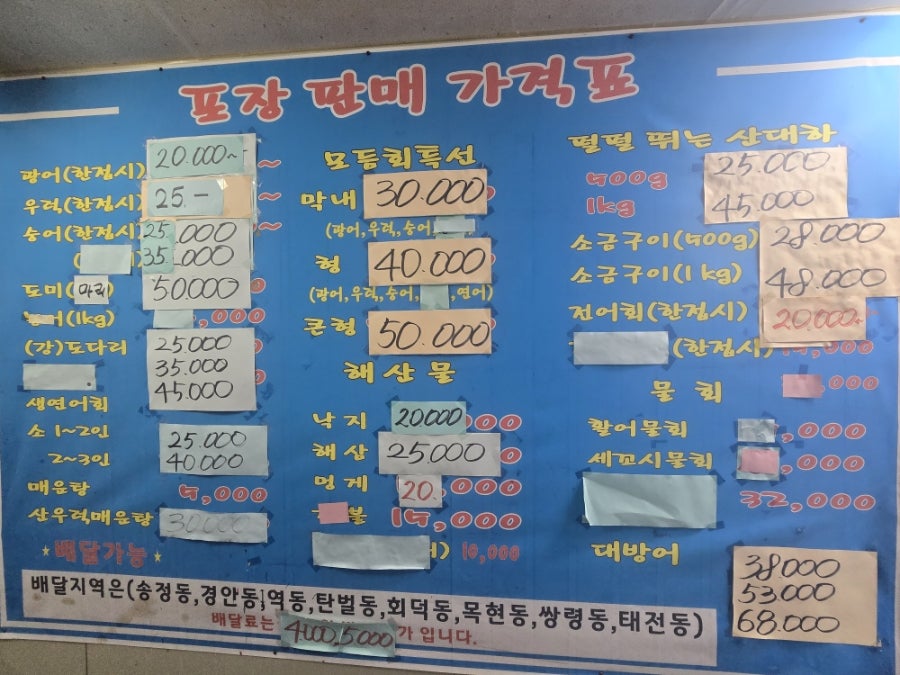 포장 판매 가격표
광어(한접시) 20.000~ ~
우럭(한접시) 25.- ~
숭어(한접시) 25.000 ~
35.000
도미(마리) 50.000
어(1kg) ,000
(강)도다리 25.000
35.000
45.000
생연어회
소 1~2인 25.000
2~3인 40.000
매운탕 5,000
산우럭매운탕 30.000
★배달가능★
모듬회특선
막내 30.000
(광어,우럭,숭어
형 40.000
(광어,우럭,숭어, ,연어)
큰형 50.000
해산물
낙지 20000 000
해산 25000
멍게 20. ,000
불 15,000
) 10,000
펄펄 뛰는 산대하
500g 25.000
1kg 45.000
소금구이(500g) 28.000
소금구이(1kg) 48.000
전어회(한접시) 20.000~
(한접시) ,000
물회 ,000
활어물회 ,000
세꼬시물회 ,000
32,000
대방어 38.000
53.000
68.000
배달지역은(송정동,경안동,역동,탄벌동,회덕동,목현동,쌍령동,태전동)
배달료는 4000,5000 가 입니다.